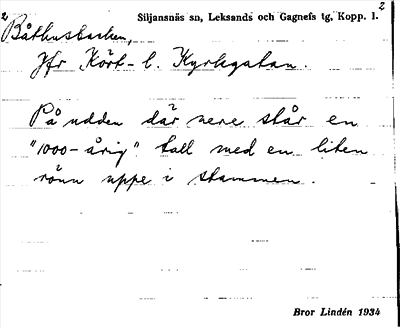 2 Siljansnäs sn, Leksands och Gagnefs tg, Kopp. l. 2
Båthusbacken,
Jfr Kört- l. Kyrkgatan.
På udden där nere står en
"1000-årig" tall med en liten
rönn uppe i stammen.
Bror Lindén 1934